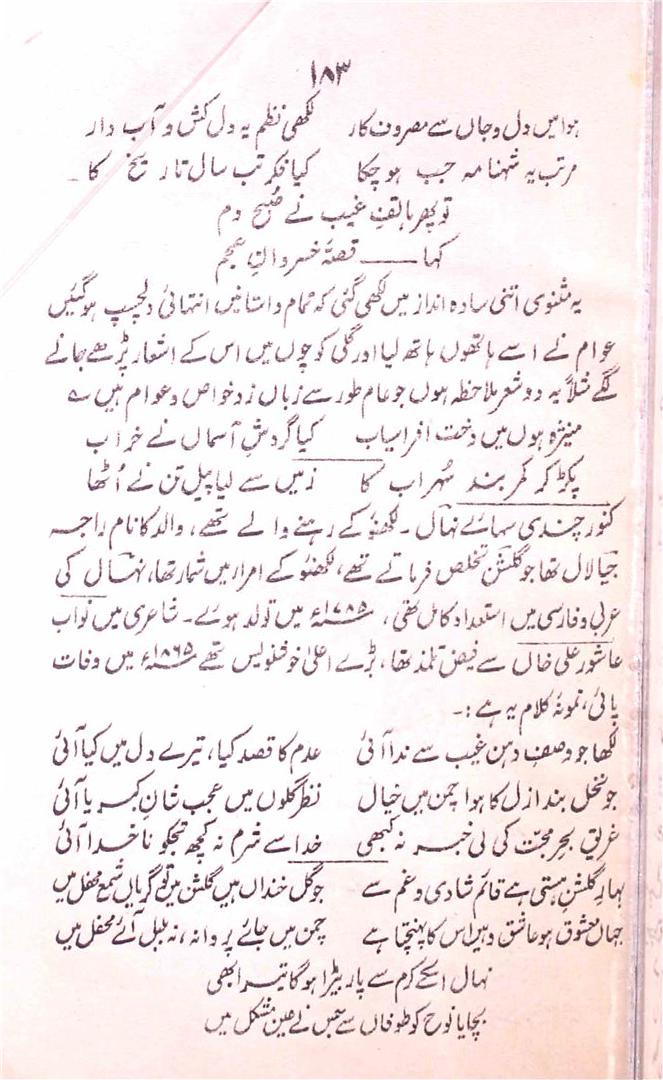 ۱۸۳
ہوا میں دل و جاں سے مصروف کار لکھی نظم یہ دل کش و آب دار
مرتب یہ شہنامہ جب ہو چکا کیا فکر تب سال تاریخ کا ۔
تو پھر ہاتف غیب نے صُبح دم
کہا ــــــ قصۂ خسروانِ عجم
یہ مثنوی اتنی سادہ انداز میں لکھی گئی کہ تمام داستانیں انتہائی دلچسپ ہو گئیں
عوام نے اسے ہاتھوں ہاتھ لیا اور گلی کوچوں میں اس کے اشعار پڑھے جانے
لگے مثلاً یہ دو شعر ملاحظہ ہوں جو عام طور سے زباں زد خواص و عوام ہیں ؎
منیژہ ہوں میں دخت افراسیاب کیا گردشِ آسماں نے خراب
پکڑ کر کمر بند سُہراب کا زمیں سے لیا پیل تن نے اُٹھا
کنور چندی سہائے نہال ۔ لکھنؤ کے رہنے والے تھے، والد کا نام راجہ
جیالال تھا جو گلشن تخلص فرماتے تھے، لکھنؤ کے امرا میں شمار تھا، نہال کی
عربی و فارسی میں استعداد کامل تھی، ۱۷۸۵ء میں تولد ہوئے۔ شاعری میں نواب
عاشور علی خاں سے فیض تلمذ تھا، بڑے اعلیٰ خوشنویس تھے ۱۸۶۵ء میں وفات
پائی، نمونۂ کلام یہ ہے :۔
لکھا جو وصفِ دہن غیب سے ندا آئی عدم کا قصد کیا، تیرے دل میں کیا آئی
جو نخل بند ازل کا ہوا چمن میں خیال نظر گلوں میں عجب شانِ کبریا آئی
غریق بحر محبّت کی لی خبر نہ کبھی خدا سے شرم نہ کچھ تجکو ناخدا آئی
بہارِ گلشنِ ہستی ہے قائم شادی و غم سے جو گل خنداں ہیں گلشن میں تو گریاں شمع محفل میں
جہاں معشوق ہو عاشق وہیں اس کا پہنچتا ہے چمن میں جائے پروانہ، نہ بلبل آئے محفل میں
نہال اسکے کرم سے پار بیڑا ہو گا تیرا بھی
بچایا نوح کو طوفاں سے جس نے عین مشکل میں